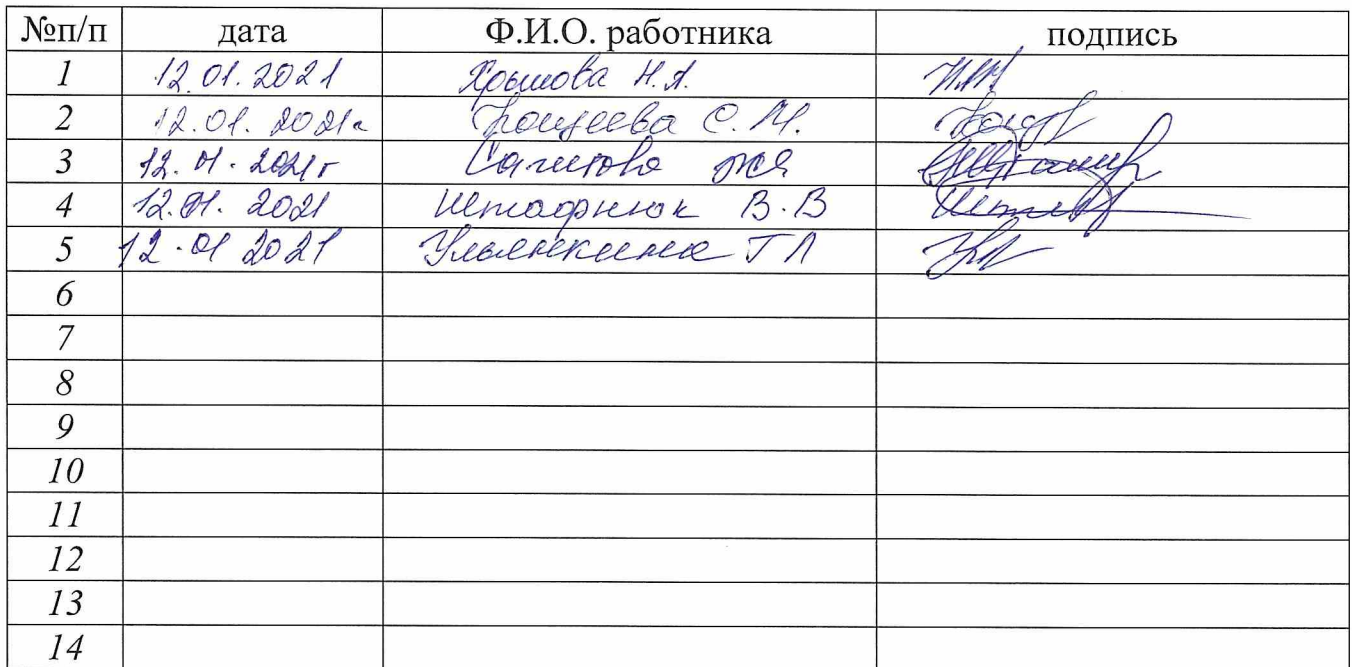 №п/п дата Ф.И.О. работника подпись
1 12.01.2021 Хрышова Н.А.
2 12.01.2021г С.М.
3 12.01.2021г
4 12.01.2021 В.В
5 12.01 2021 Ульянкина Г Л
6
7
8
9
10
11
12
13
14